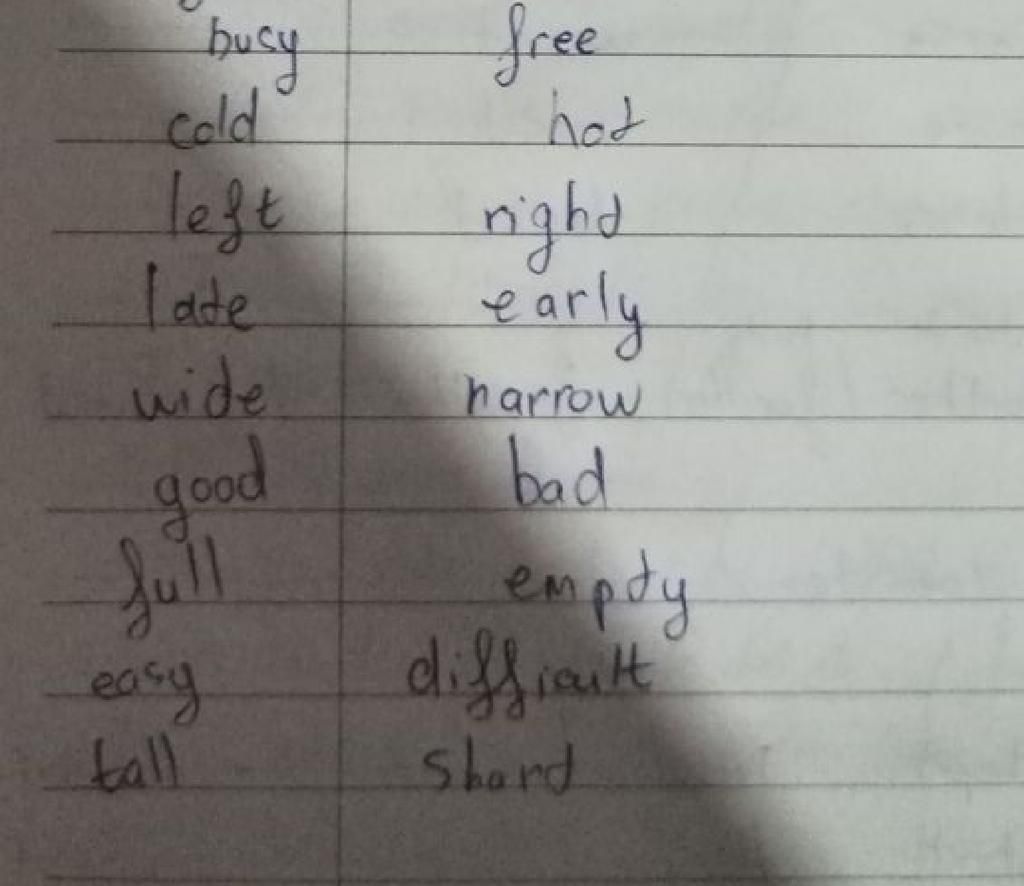 busy free
cold hot
left right
late early
wide narrow
good bad
full empty
easy difficult
tall short